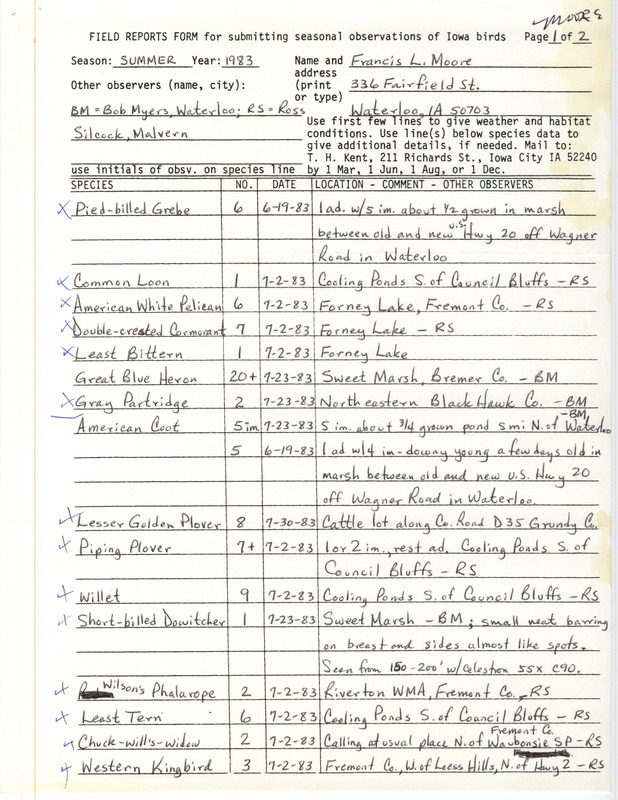 MOORE
FIELD REPORTS FORM for submitting seasonal observations of Iowa birds Page 1 of 2
Season: SUMMER Year: 1983 Name and Francis L. Moore
address
(print 336 Fairfield St.
or type)
Other observers (name, city):
BM = Bob Myers, Waterloo; RS = Ross Waterloo, IA 50703
Silcock, Malvern
Use first few lines to give weather and habitat
conditions. Use line(s) below species data to
give additional details, if needed. Mail to:
T. H. Kent, 211 Richards St., Iowa City IA 52240
use initials of obsv. on species line by 1 Mar, 1 Jun, 1 Aug, or 1 Dec.
SPECIES NO. DATE LOCATION - COMMENT - OTHER OBSERVERS
x Pied-billed Grebe 6 6-19-83 1 ad. w/5 im. about 1/2 grown in marsh
between old and new U.S. Hwy 20 off Wagner
Road in Waterloo
x Common Loon 1 7-2-83 Cooling Ponds S. of Council Bluffs - RS
x American White Pelican 6 7-2-83 Forney Lake, Fremont Co. - RS
x Double-crested Cormorant 7 7-2-83 Forney Lake - RS
x Least Bittern 1 7-2-83 Forney Lake
Great Blue Heron 20+ 7-23-83 Sweet Marsh, Bremer Co. - BM
x Gray Partridge 2 7-23-83 Northeastern Black Hawk Co. - BM
American Coot 5 im 7-23-83 5 im. about 3/4 grown pond 5 mi N. of Waterloo - BM
5 6-19-83 1 ad w/4 im - downy young a few days old in
marsh between old and new U.S. Hwy 20
off Wagner Road in Waterloo.
x Lesser Golden Plover 8 7-30-83 Cattle lot along Co. Road D35 Grundy Co.
x Piping Plover 7+ 7-2-83 1 or 2 im., rest ad. Cooling Ponds S. of
Council Bluffs - RS
x Willet 9 7-2-83 Cooling Ponds S. of Council Bluffs - RS
x Short-billed Dowitcher 1 7-23-83 Sweet Marsh - BM; small neat barring
on breast and sides almost like spots.
Seen from 150-200' w/Celestron 55X C90.
x Wilson's Phalarope 2 7-2-83 Riverton WMA, Fremont Co. - RS
x Least Tern 6 7-2-83 Cooling Ponds S. of Council Bluffs - RS
x Chuck-will's-widow 2 7-2-83 Calling at usual place N. of Waubonsie SP Fremont Co. - RS
x Western Kingbird 3 7-2-83 Fremont Co., W. of Loess Hills, N. of Hwy 2 - RS